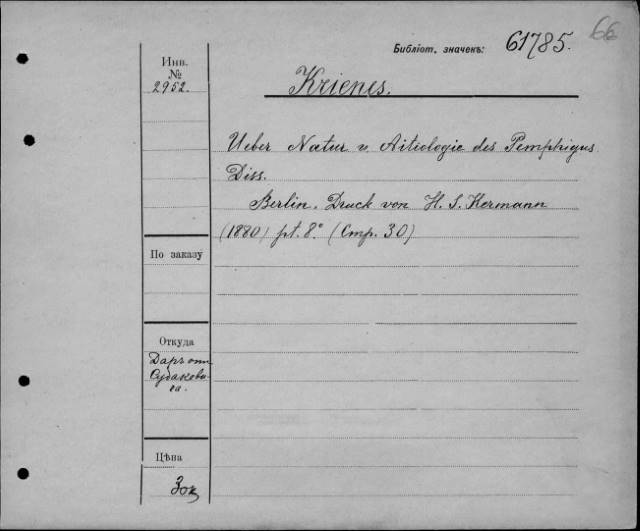 66
Библіот. значекъ: 61785.
Инв.
№
2952.
Krienes.
Ueber Natur v Aitiologie des Pemphigus.
Diss.
Berlin. Druck von H. S. Hermann
(1880) pt. 8° (Стр. 30)
По заказу
Откуда
Даръ отъ
Судакова
Цѣна
30к